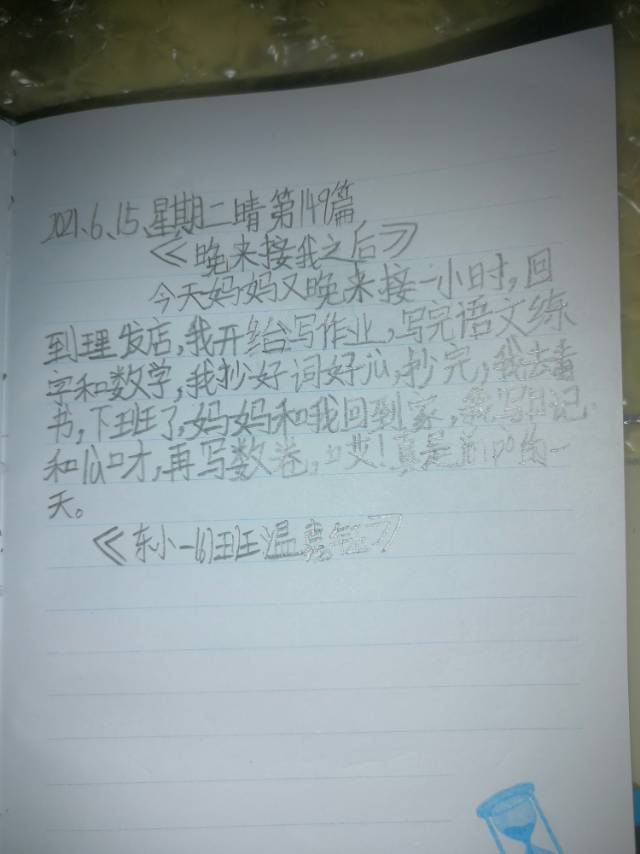 2021.6.15.星期二晴第149篇
《晚来接我之后》
今天妈妈又晚来接一小时,回
到理发店,我开始写作业,写完语文练
字和数学,我抄好词好瓜,抄完,我去看
书,下班了,妈妈和我回到家,我写日记
和瓜口才,再写数卷,哎!真是的一
天。
《东小一(6)班温